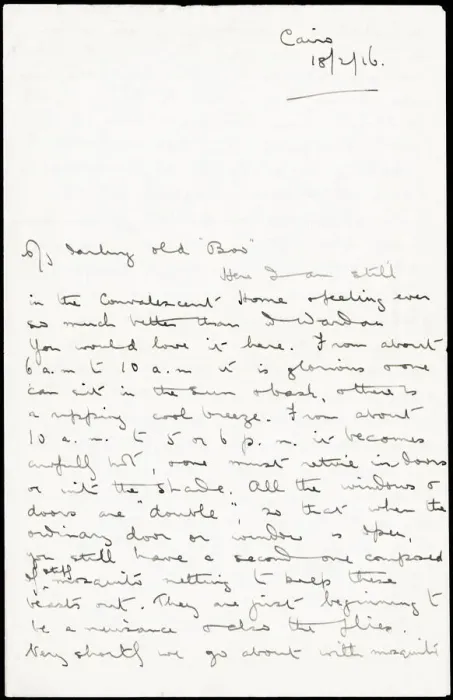 Cairo
18/2/16.
My darling old "Boo"
Here I am still
in the Convalescent Home & feeling ever
so much better than I
You would love it here. From about
6 a.m to 10 a.m it is glorious & one
can sit in the sun & bask, & there is
a ripping cool breeze. From about
10 a.m. to 5 or 6 p.m. it becomes
awfully hot, & one must retire indoors
or into the shade. All the windows &
doors are "double", so that when the
ordinary door or window is open,
you still have a second one composed
of stiff mosquito netting to keep these
beasts out. They are just beginning to
be a newsance & also the flies.
Very shortly we go about with mosquito